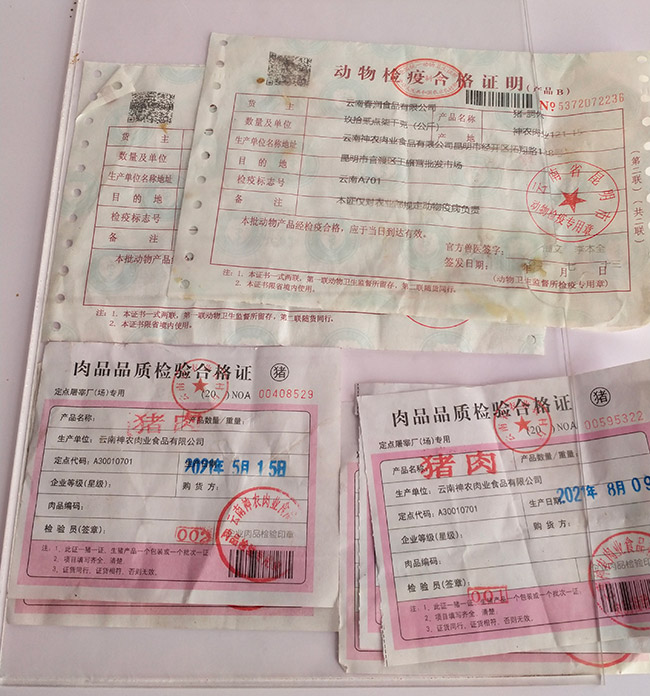 动物检疫合格证明(产品B)
No 5372072236
货 主 云南春润食品有限公司 产品名称 猪
数量及单位 玖拾点柒千克(公斤) 产 地
生产单位名称地址 云南神农肉业食品有限公司昆明市经开区
目 的 地 昆明市官渡区王旗营批发市场
检疫标志号 云南A701
备 注 本证仅对
本批动物产品经检疫合格,应于当日到达有效。
官方兽医签字:
签发日期: 年 月 日
(动物卫生监督所检疫专用章)
注:1. 本证书一式两联,第一联动物卫生监督所留存,第二联随货同行。
2. 本证书限省境内使用。
(第二联)(共二联)
云南省昆明市
动物检疫专用章
货 主
数量及单位
生产单位名称地址
目 的 地
检疫标志号
备 注
本批动物产品经检疫合格
注:1. 本证书一式两联,第一联动物卫生监督所留存,第二联随货同行。
2. 本证书限省境内使用。
肉品品质检验合格证 猪
定点屠宰厂(场)专用 (20 )NOA 00408529
产品名称: 猪肉 产品数量/重量:
生产单位:云南神农肉业食品有限公司
定点代码:A30010701 2021年5月15日
企业等级(星级): 购 货 方:
肉品编码:
检 验 员(签章): 002 肉品检验印章
注:1、此证一猪一证,生猪产品一个包装或一个批次一证
2、项目填写齐全、清楚。
3、证货同行,证货相符,否则无效。
云南神农肉业食
肉品检验专用章
肉品品质检验合格证 猪
定点屠宰厂(场)专用 (20 )NOA 00595322
产品名称: 猪肉 产品数量/重量:
生产单位:云南神农肉业食品有限公司
定点代码:A30010701 生产日期 2021年8月09
企业等级(星级): 购 货 方:
肉品编码:
检 验 员(签章): 肉品检验印章
注:1、此证一猪一证,生猪产品一个包装或一个批次一证。
2、项目填写齐全、清楚。
3、证货同行,证货相符,否则无效。